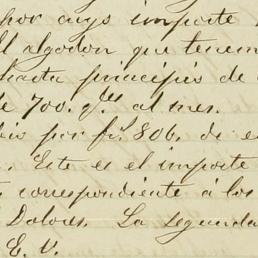 por cuyo importe
el algodon que tenem
hasta principiós de
de 700. q.les al mes.
por fr. 806. de e
. Este es el importe
correspondiente á los
Dolores. La segunda
E. V.